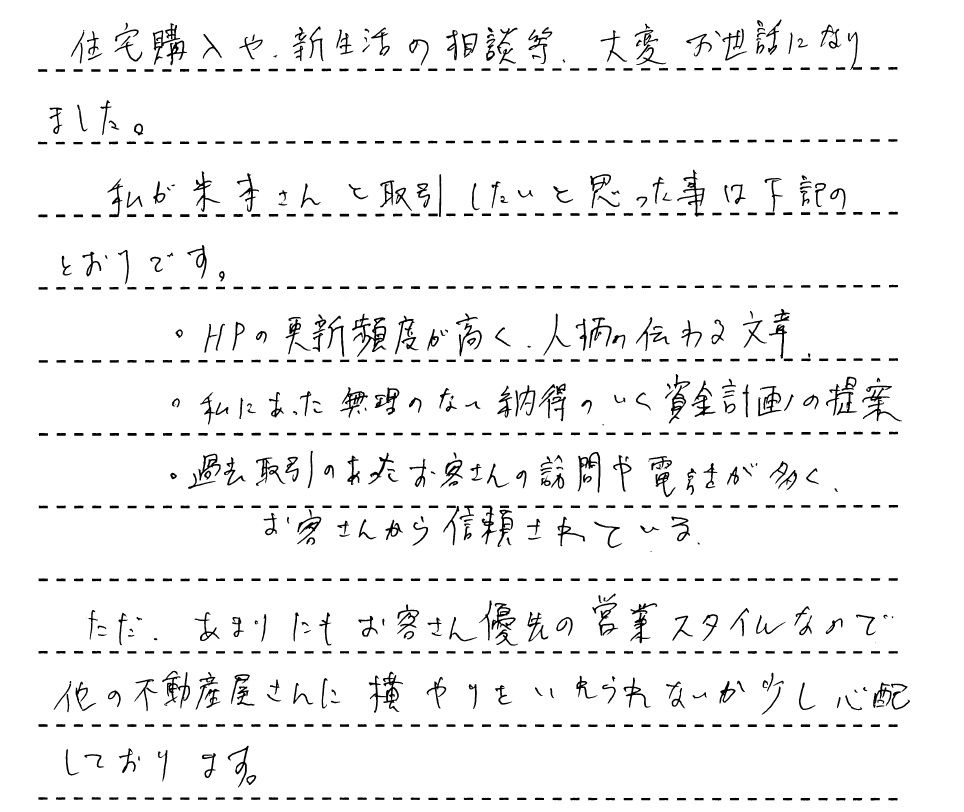 住宅購入や、新生活の相談等、大変お世話になり
ました。
私が朱本さんと取引したいと思った事は下記の
とおりです。
。HPの更新頻度が高く、人柄の伝わる文章、
。私にあった無理のない納得のいく資金計画の提案
・過去取引のあったお客さんの訪問や電話が多く、
お客さんから信頼されている、
ただ、あまりにもお客さん優先の営業スタイルなので
他の不動産屋さんに横やりをいれられないか少し心配
しております。